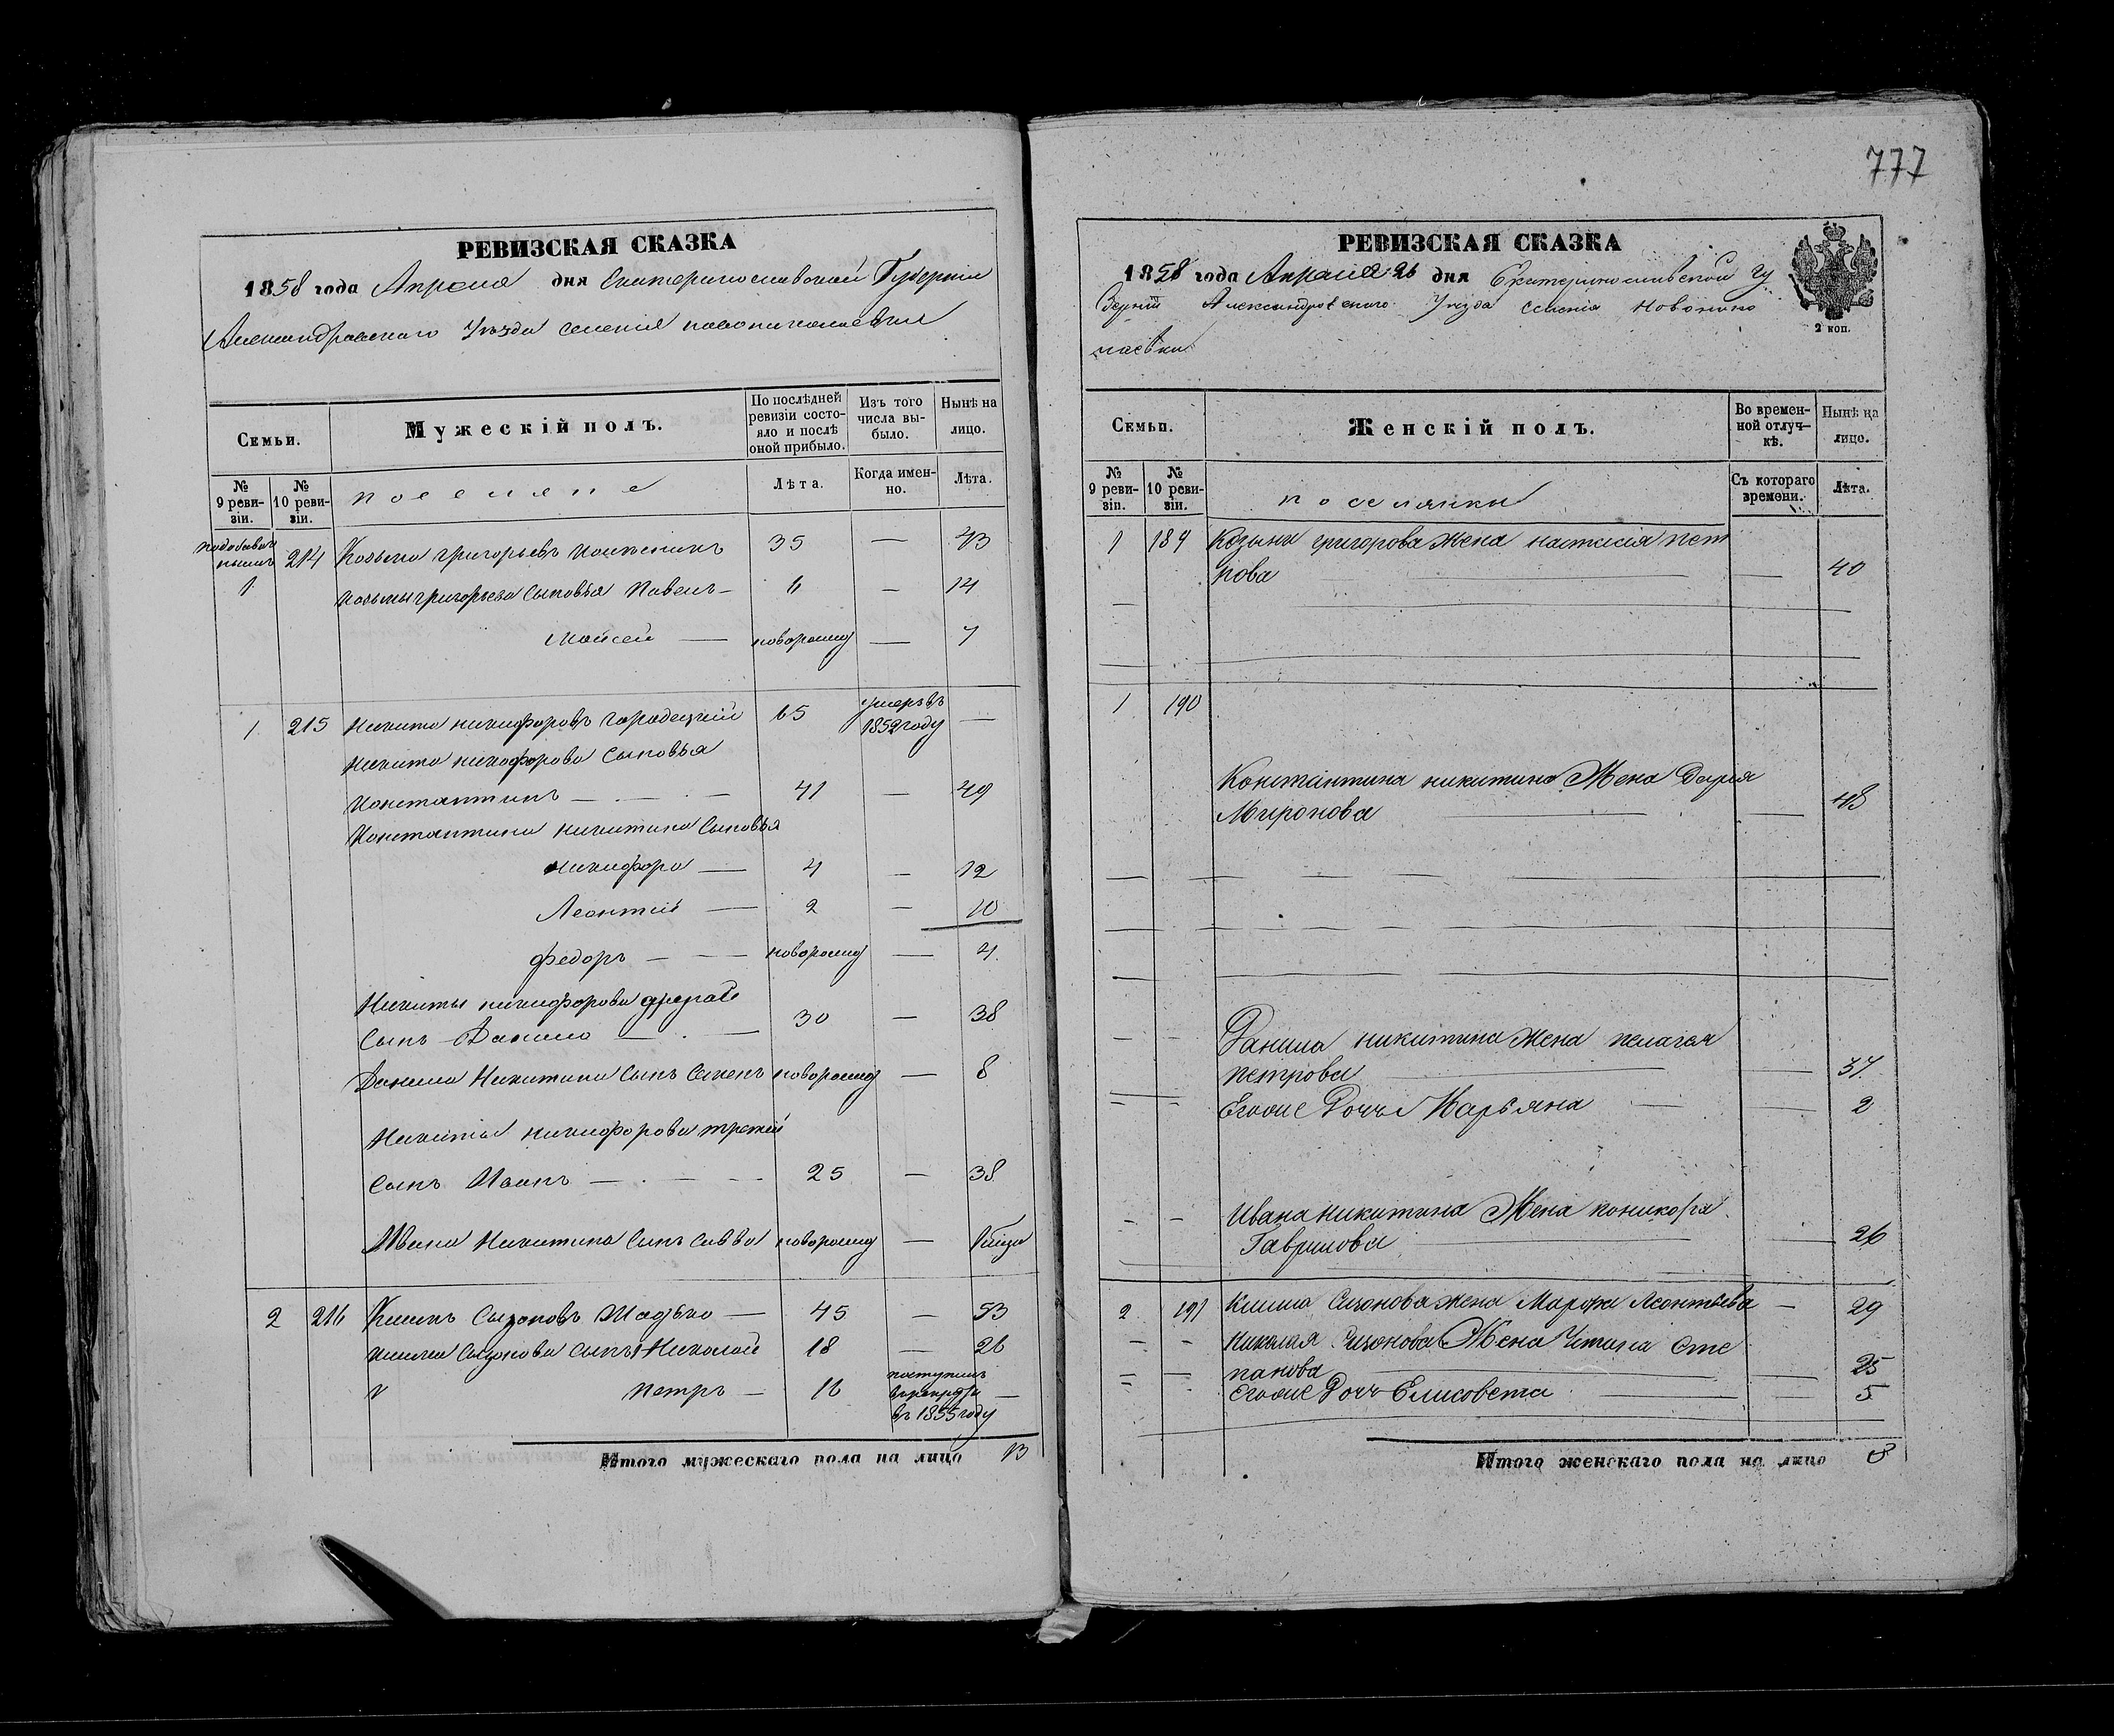 777
РЕВИЗСКАЯ СКАЗКА
1858 года Апреля дня Екатеринославской Губернии
Александровскаго Уезда селения новониколаевки
Семьи.
Мужескій полъ.
По послѣдней ревизіи состо-
яло и послѣ
оной прибыло.
Изъ того
числа вы-
было.
Нынѣ на
лицо.
№
9 реви-
зіи.
№
10 реви-
зіи.
поселяне
Лѣта.
Когда имен-
но.
Лѣта.
214 Козьма григорьевъ 35 — 43
1 Козьмы григорьева сыновья Павелъ — 6 — 14
Мойсей — новорожд — 7
1. 215 Никита никифоровъ городецкий 65 умеръ въ 1852 году —
Никиты никифорова сыновья
Константинъ — 41 — 49
Константина никитина сыновья
никифоръ — 4 — 12
Леонтий — 2 — 10
федоръ — новорожд — 4.
Никиты никифорова другой
сынъ Данило — 30 — 38
Данила Никитина сынъ новорожд — 8
Никиты никифорова третий
сынъ Иванъ — 25 — 38
Ивана Никитина сынъ Савва новорожд —
2 216 Климъ — 45 — 53
Клима сынъ Николай 18 — 26
петръ — 16 поступилъ
—
въ 1855 году
Итого мужескаго пола на лицо 13
РЕВИЗСКАЯ СКАЗКА
1858 года Апреля 26 дня Екатеринославской гу
берній Александровскаго Уезда селенія Новонико
лаевки
2 коп.
Семьи.
Женскій полъ.
Во времен-
ной отлуч-
кѣ.
Нынѣ на
лицо.
№
9 реви-
зіи.
№
10 реви-
зіи.
поселянки
Съ котораго
времени.
Лѣта.
1 189 Козьмы григорова жена настасія пет
рова — 40
1 190
Константина никитина Жена Дарья
Миронова — 48
Данила никитина жена пелагея
петрова — 37
Егоже Дочь Марьяна — 2
Ивана никитина Жена
Гаврилова — 26
2 191 Клима Сизонова жена Марфа Леонтьева — 29
Николая Сизонова Жена Устина Сте
панова — 25
Егоже Дочь Елисовета — 5
Итого женскаго пола на лицо 8